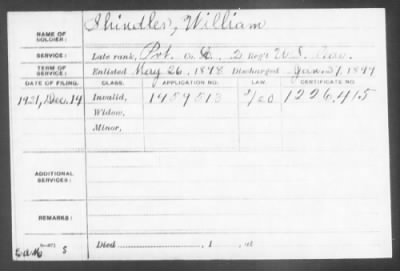 NAME OF SOLDIER: Shindler, William
SERVICE: Late rank, Pvt. Co. 2 Reg't U.S. Cav.
TERM OF SERVICE: Enlisted May 26, 1898 Discharged Jan. 31, 1899
DATE OF FILING. CLASS. APPLICATION NO. LAW. CERTIFICATE NO.
1921, Dec. 14 Invalid, 1459513 1226,415
Widow,
Minor,
ADDITIONAL SERVICES:
REMARKS:
S Died , 1 , at